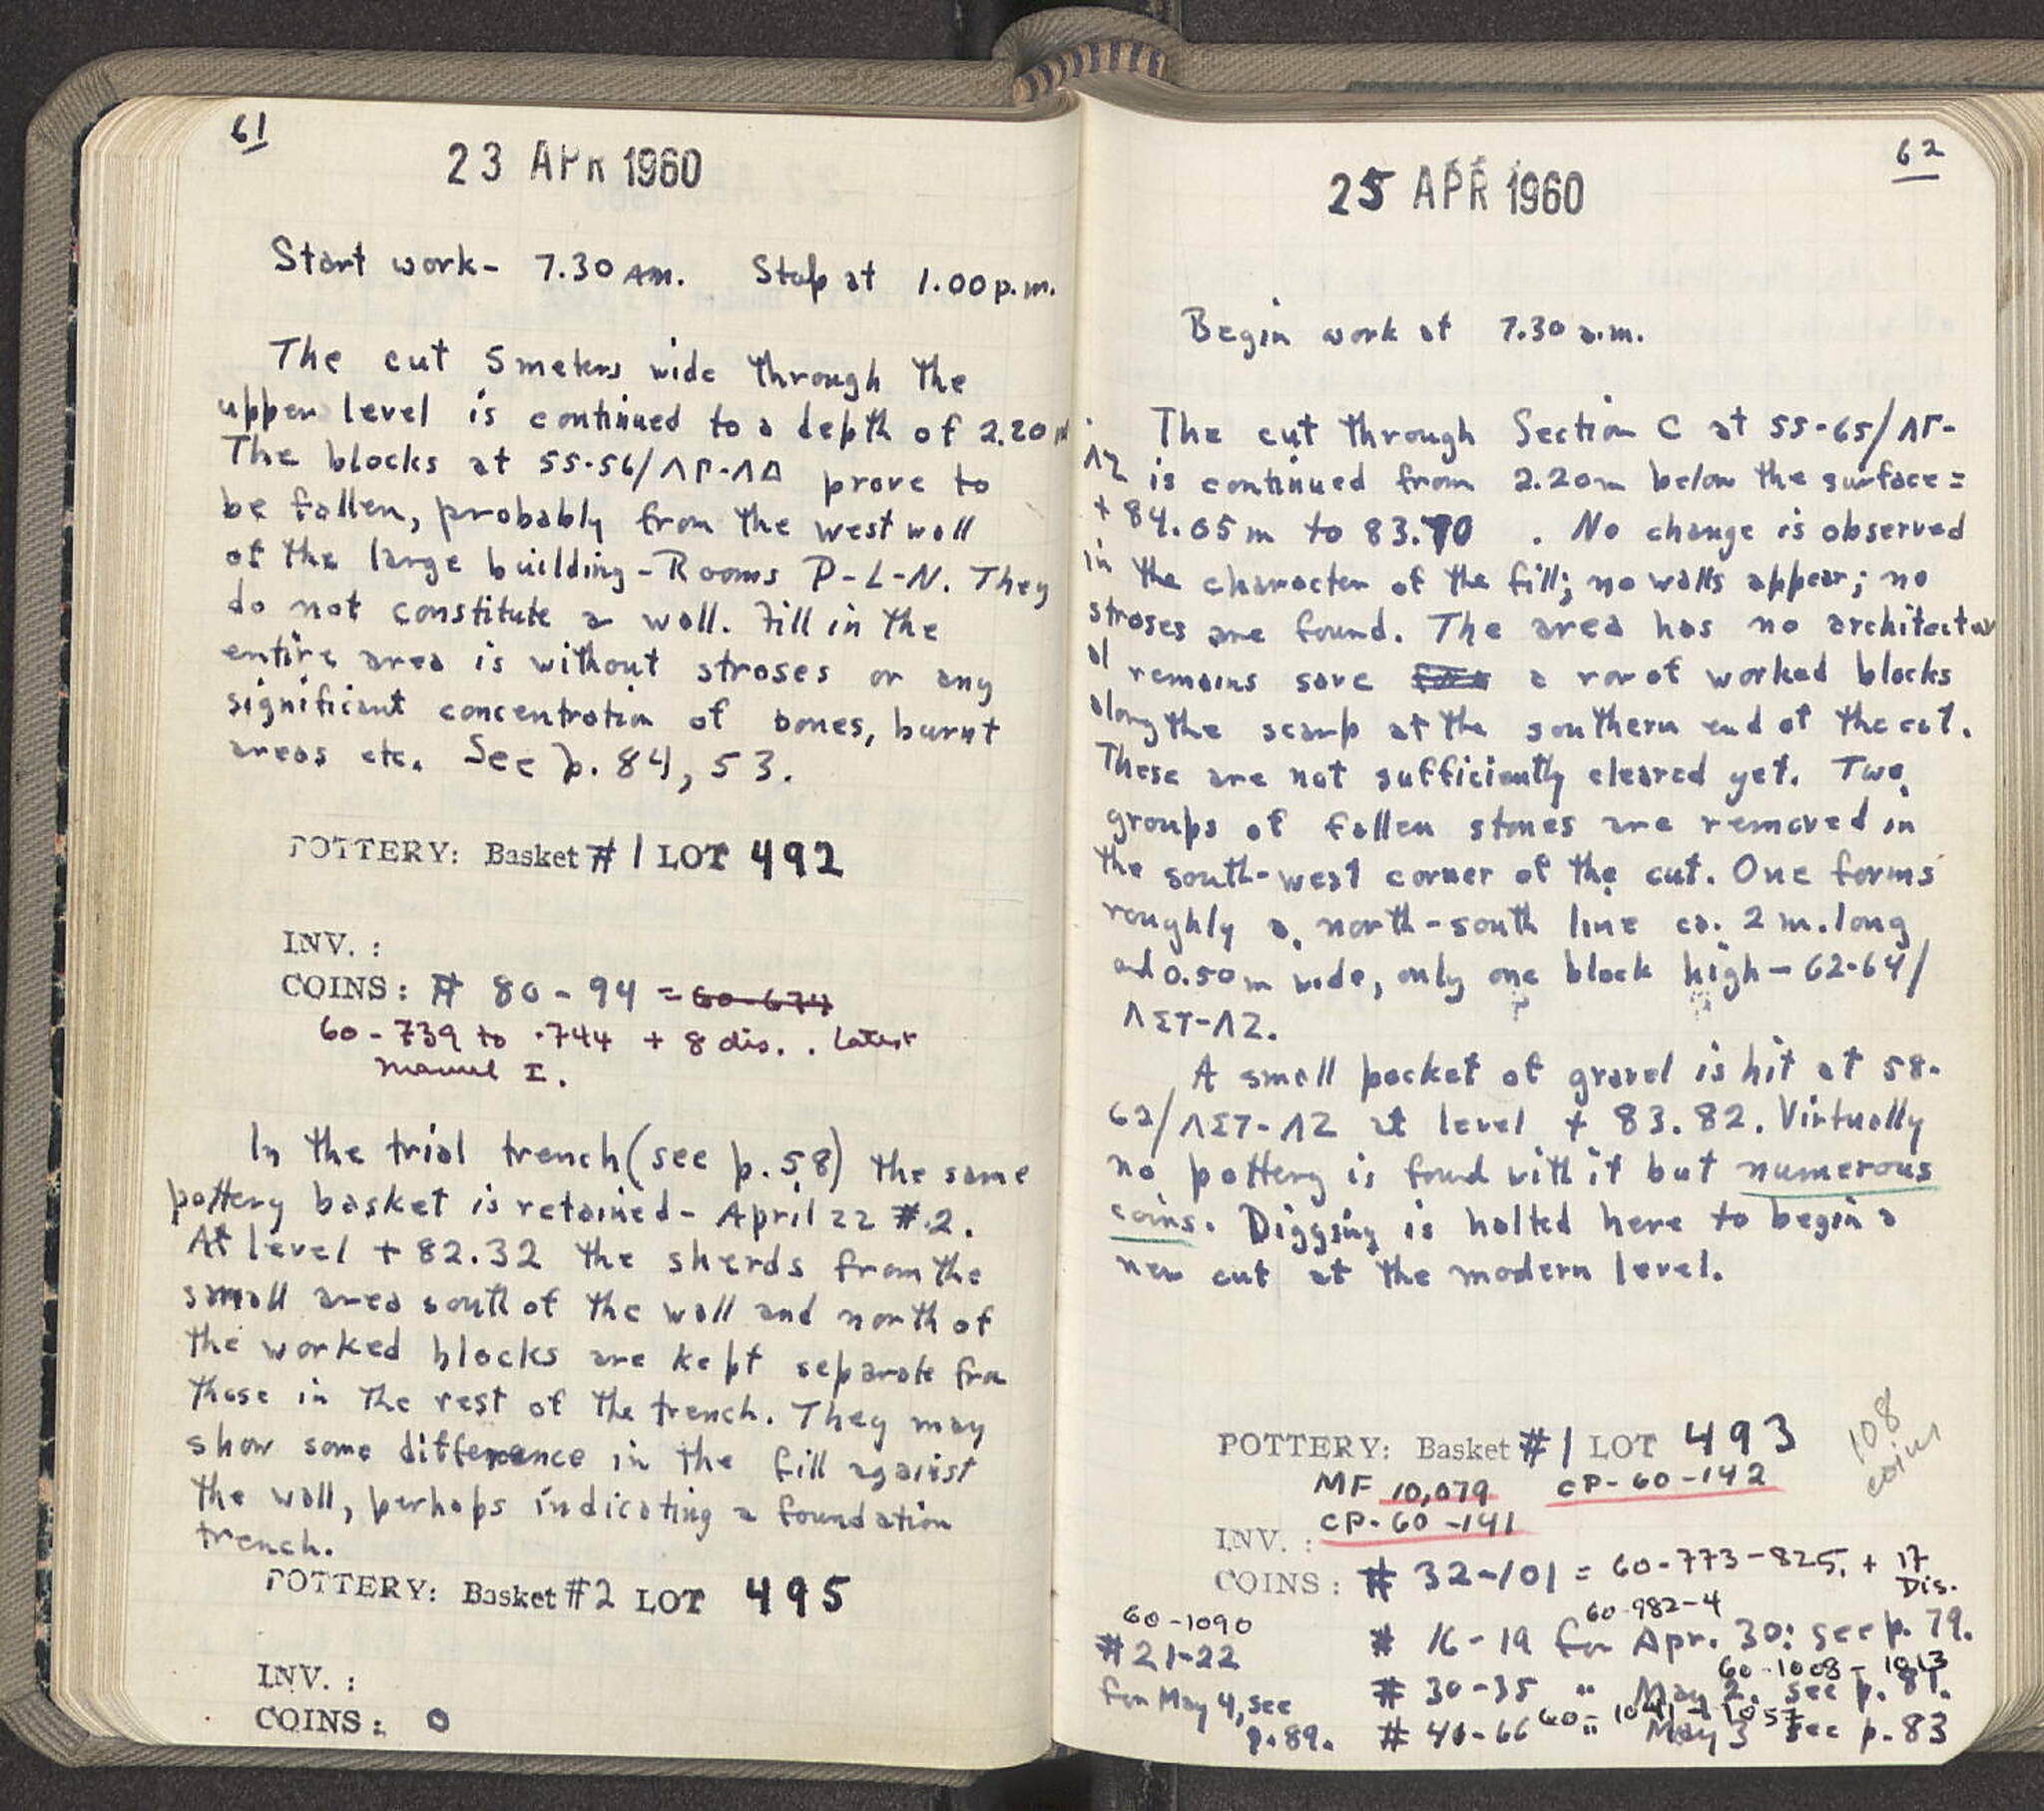 61
23 APR 1960
Start work- 7.30 AM. Stop at 1.00 p.m.
The cut 5 meters wide through the
upper level is continued to a depth of 2.20 m
The blocks at 55-56/ΛΓ-ΛΔ prove to
be fallen, probably from the west wall
of the large building - Rooms P-L-N. They
do not constitute a wall. Fill in the
entire area is without stroses or any
significant concentration of bones, burnt
areas etc. See p. 84, 53.
POTTERY: Basket #1 LOT 492
INV. :
COINS: # 80-94 = 60-674
60-739 to .744 + 8 dis. . Latest
Manuel I.
In the trial trench (see p. 58) the same
pottery basket is retained - April 22 #2.
At level + 82.32 the sherds from the
small area south of the wall and north of
the worked blocks are kept separate from
those in the rest of the trench. They may
show some difference in the fill against
the wall, perhaps indicating a foundation
trench.
POTTERY: Basket #2 LOT 495
INV. :
COINS: 0
62
25 APR 1960
Begin work at 7.30 a.m.
The cut through Section C at 55-65/ΛΓ-
ΛΖ is continued from 2.20m below the surface =
+ 84.05 m to 83.70 . No change is observed
in the character of the fill; no walls appear; no
stroses are found. The area has no architectur
al remains save a row of worked blocks
along the scarp at the southern end of the cut.
These are not sufficiently cleared yet. Two
groups of fallen stones are removed in
the south-west corner of the cut. One forms
roughly a north-south line ca. 2 m. long
and 0.50 m wide, only one block high - 62-64/
ΛΣΤ-ΛΖ.
A small pocket of gravel is hit at 58-
62/ΛΣΤ-ΛΖ at level + 83.82. Virtually
no pottery is found with it but numerous
coins. Digging is halted here to begin a
new cut at the modern level.
108
coins
POTTERY: Basket #1 LOT 493
MF 10,079 CP-60-142
CP-60-141
INV. :
COINS: # 32-101 = 60-773-825, + 17
Dis.
60-982-4
# 16-19 for Apr. 30: see p. 79.
60-1008-1013
# 30-35 " May 2. see p. 81.
# 40-66 " May 3 see p. 83
60-1090
#21-22
for May 4, see
p. 89.